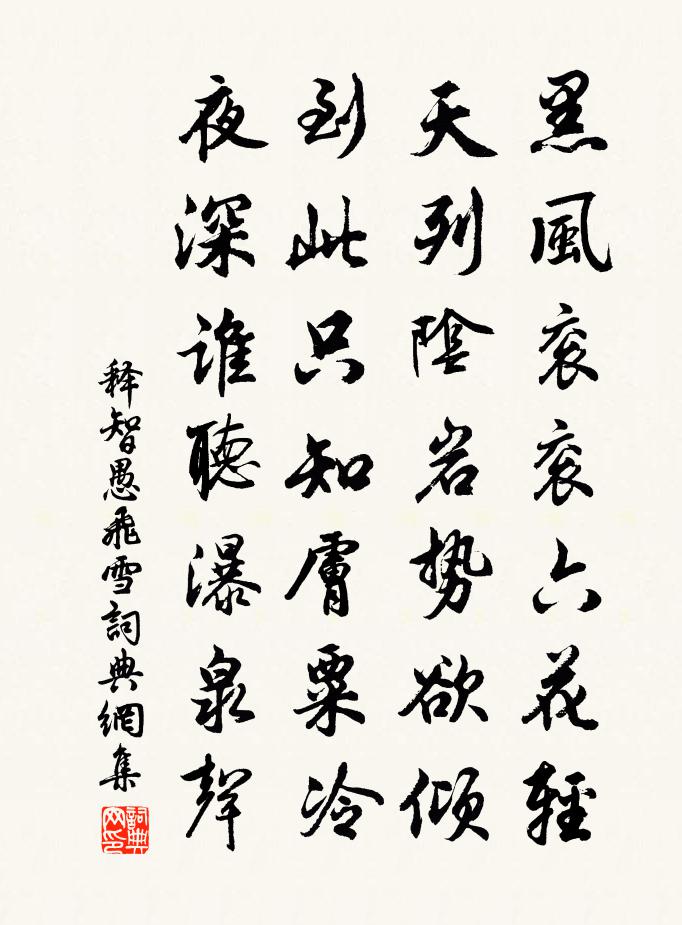 黑風衮衮六花輕
天列陰岩勢欲傾
到此只知膚粟冷
夜深誰聽瀑泉聲
释智愚飛雪詞典網集
詞典
网印